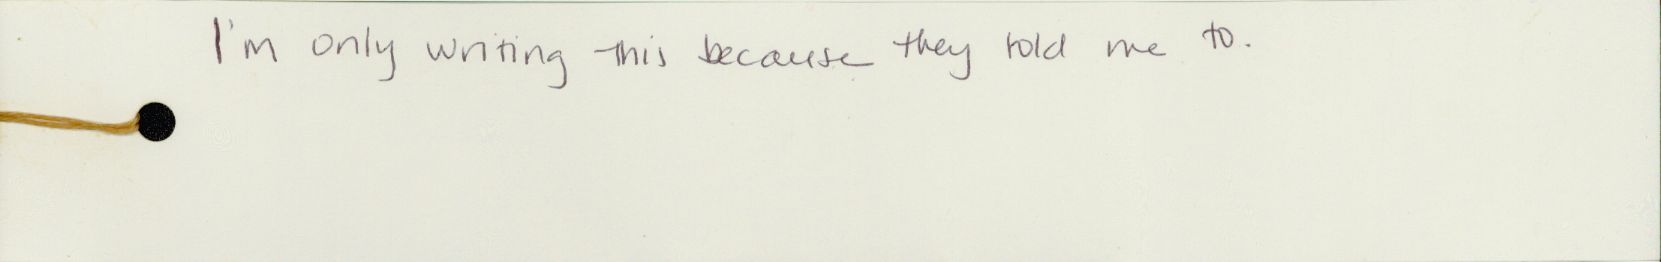 I'm only writing this because they told me to.